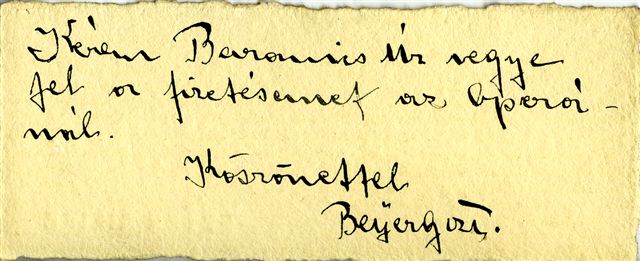 Kérem Baranis Úr vegye
fel a fizetésemet az Operá-
nál.
Köszönettel